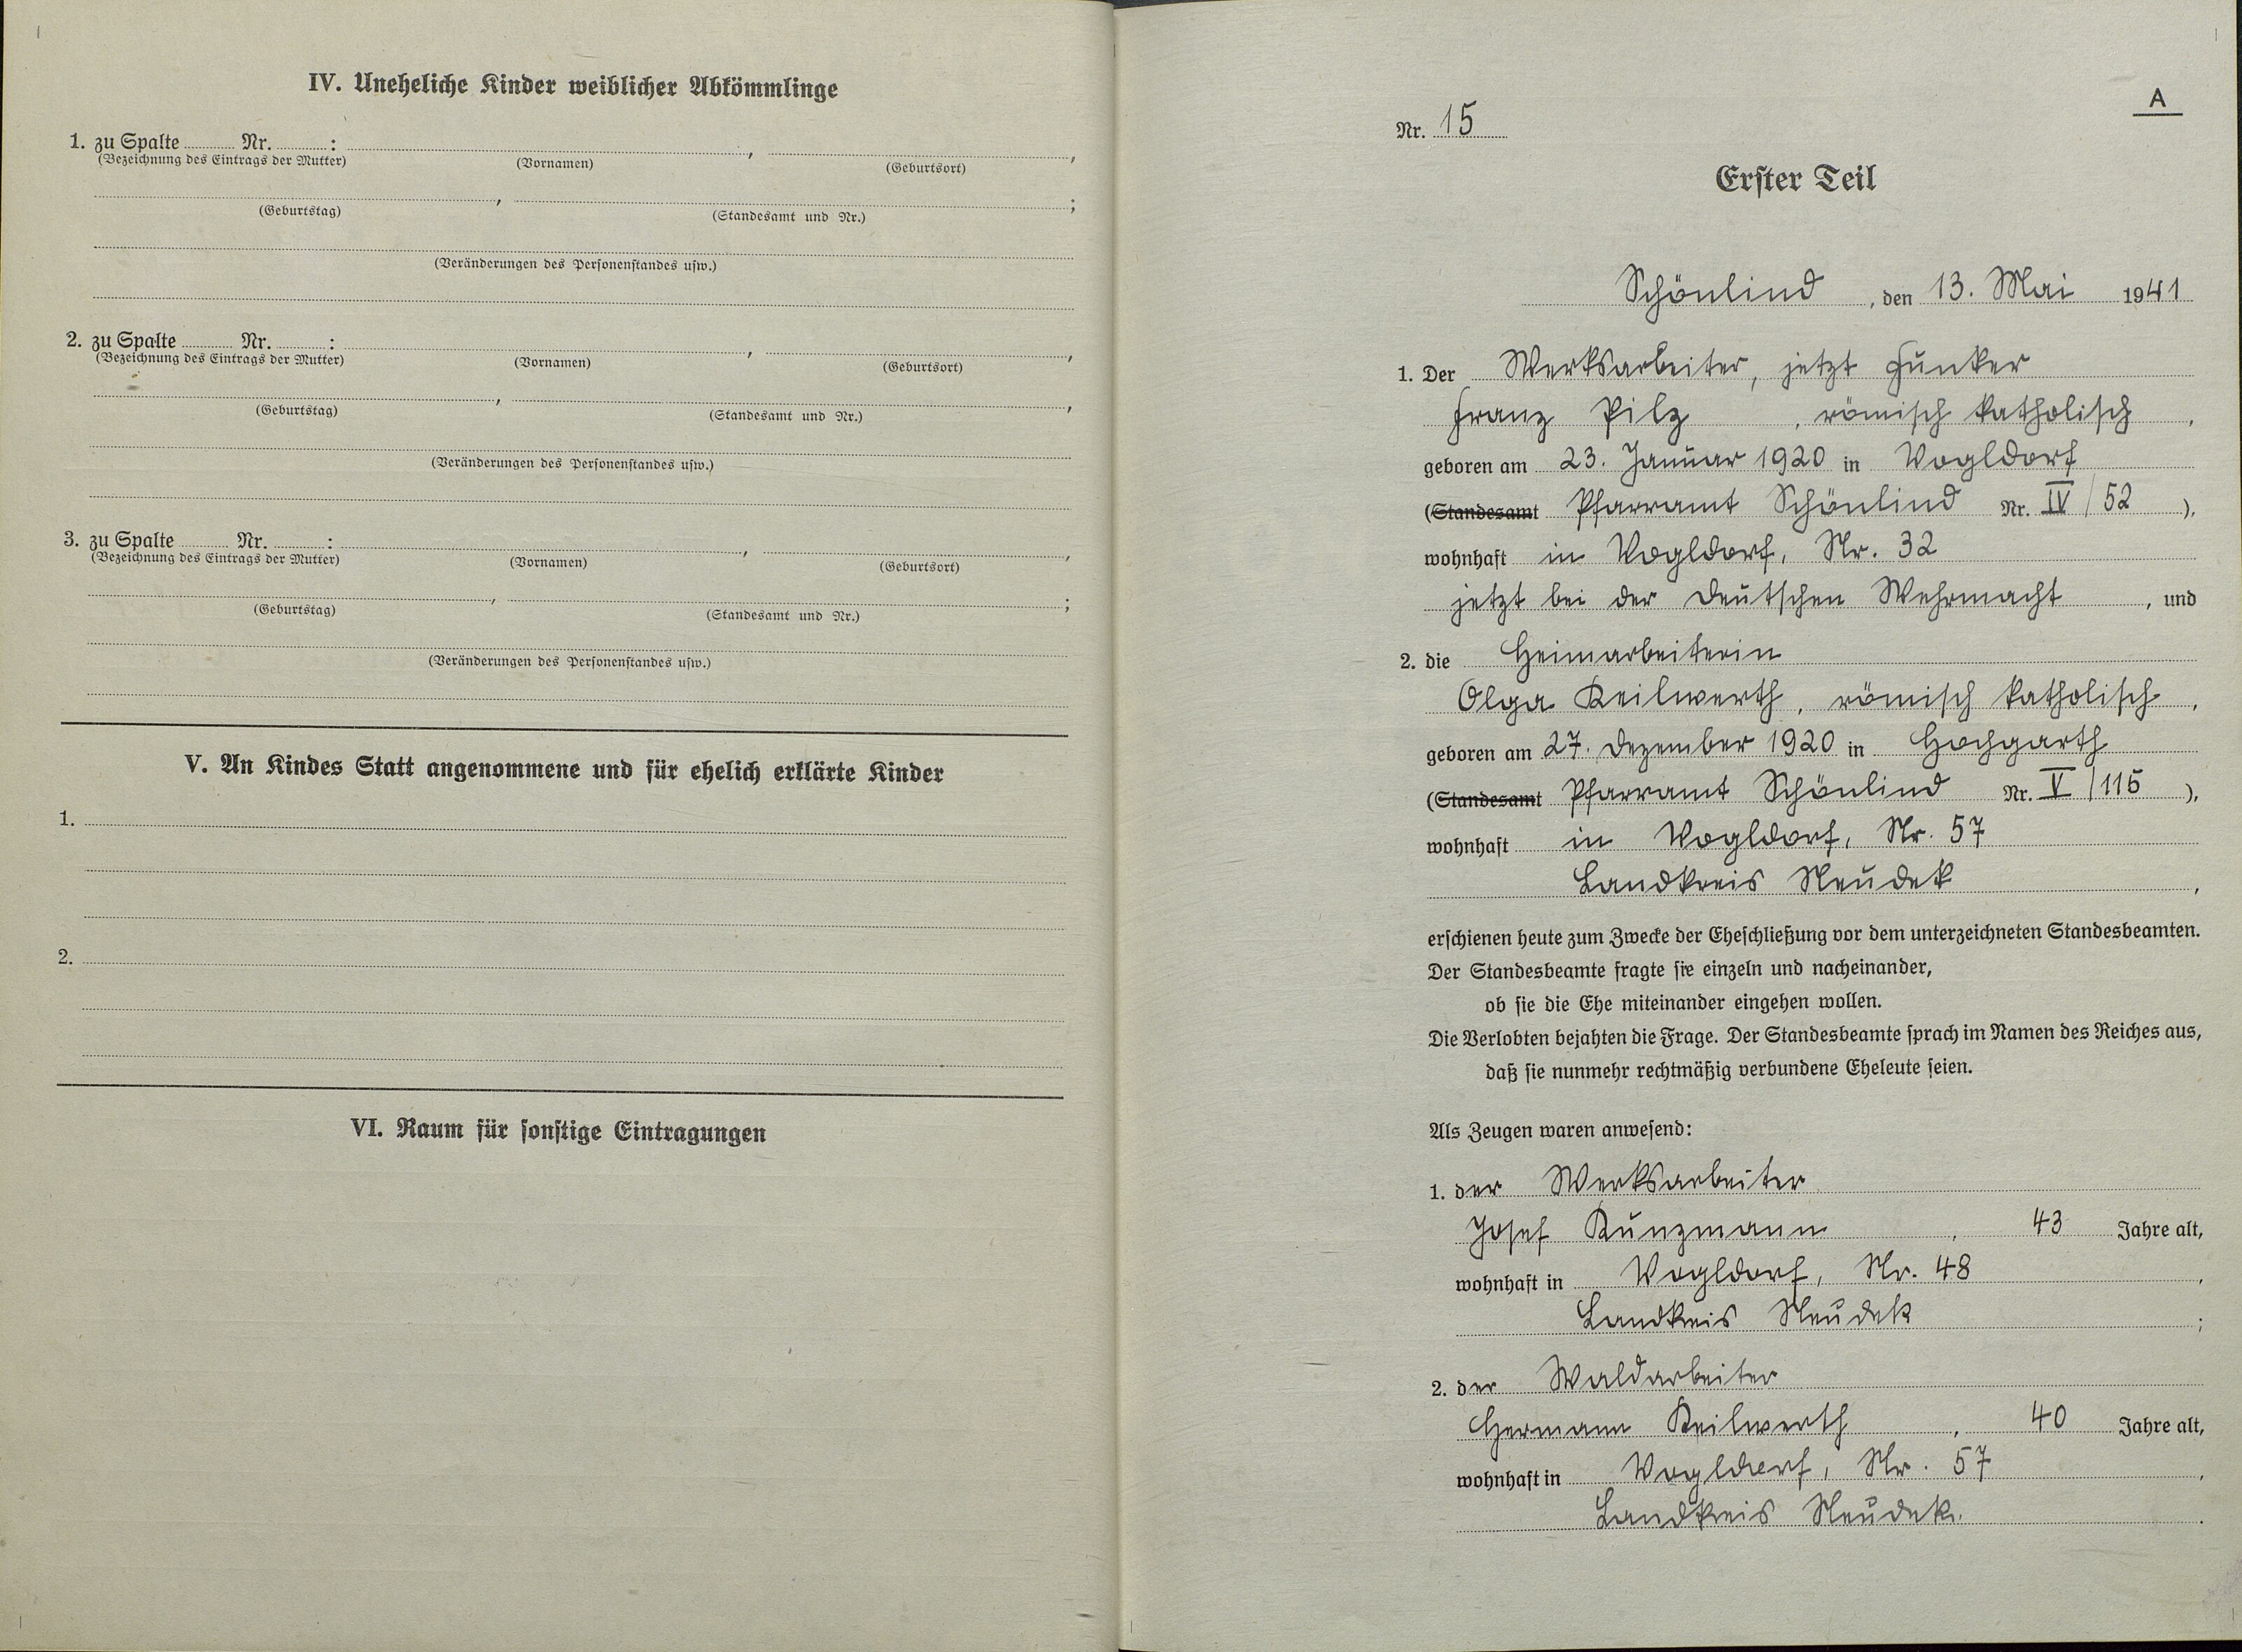 IV. Uneheliche Kinder weiblicher Abkömmlinge
1. zu Spalte ........ Nr. ........ : ........, ........,
(Bezeichnung des Eintrags der Mutter) (Vornamen) (Geburtsort)
........, ........;
(Geburtstag) (Standesamt und Nr.)
(Veränderungen des Personenstandes usw.)
2. zu Spalte ........ Nr. ........ : ........, ........,
(Bezeichnung des Eintrags der Mutter) (Vornamen) (Geburtsort)
........, ........,
(Geburtstag) (Standesamt und Nr.)
(Veränderungen des Personenstandes usw.)
3. zu Spalte ........ Nr. ........ : ........, ........,
(Bezeichnung des Eintrags der Mutter) (Vornamen) (Geburtsort)
........, ........;
(Geburtstag) (Standesamt und Nr.)
(Veränderungen des Personenstandes usw.)
V. An Kindes Statt angenommene und für ehelich erklärte Kinder
1.
2.
VI. Raum für sonstige Eintragungen
A
Nr. 15
Erster Teil
Schönlind, den 13. Mai 1941
1. Der Werksarbeiter, jetzt Funker
Franz Pilz, römisch katholisch,
geboren am 23. Januar 1920 in Vogldorf
(Standesamt Pfarramt Schönlind Nr. IV/52),
wohnhaft in Vogldorf, Nr. 32
jetzt bei der Deutschen Wehrmacht, und
2. die Heimarbeiterin
Olga Keilwerth, römisch katholisch,
geboren am 27. Dezember 1920 in Hochgarth
(Standesamt Pfarramt Schönlind Nr. V/115),
wohnhaft in Vogldorf, Nr. 57
Landkreis Neudek,
erschienen heute zum Zwecke der Eheschließung vor dem unterzeichneten Standesbeamten.
Der Standesbeamte fragte sie einzeln und nacheinander,
ob sie die Ehe miteinander eingehen wollen.
Die Verlobten bejahten die Frage. Der Standesbeamte sprach im Namen des Reiches aus,
daß sie nunmehr rechtmäßig verbundene Eheleute seien.
Als Zeugen waren anwesend:
1. der Werksarbeiter
Josef Kunzmann, 43 Jahre alt,
wohnhaft in Vogldorf, Nr. 48,
Landkreis Neudek;
2. der Waldarbeiter
Hermann Keilwerth, 40 Jahre alt,
wohnhaft in Vogldorf, Nr. 57,
Landkreis Neudek.